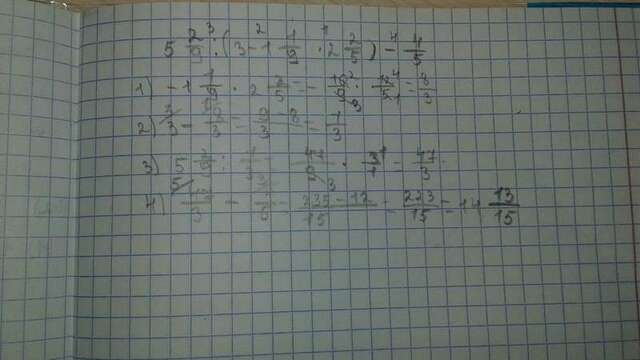 5 2/9 : (3 - 1 1/9 · 2 2/5) - 4/5
1) -1 1/9 · 2 2/5 = - 10/9 · 12/5 = - 8/3
2) 3 - 8/3 = 9/3 - 8/3 = 1/3
3) 5 2/9 : 1/3 = 47/9 · 3/1 = 47/3
4) 47/3 - 4/5 = 235-12/15 = 223/15 = 14 13/15